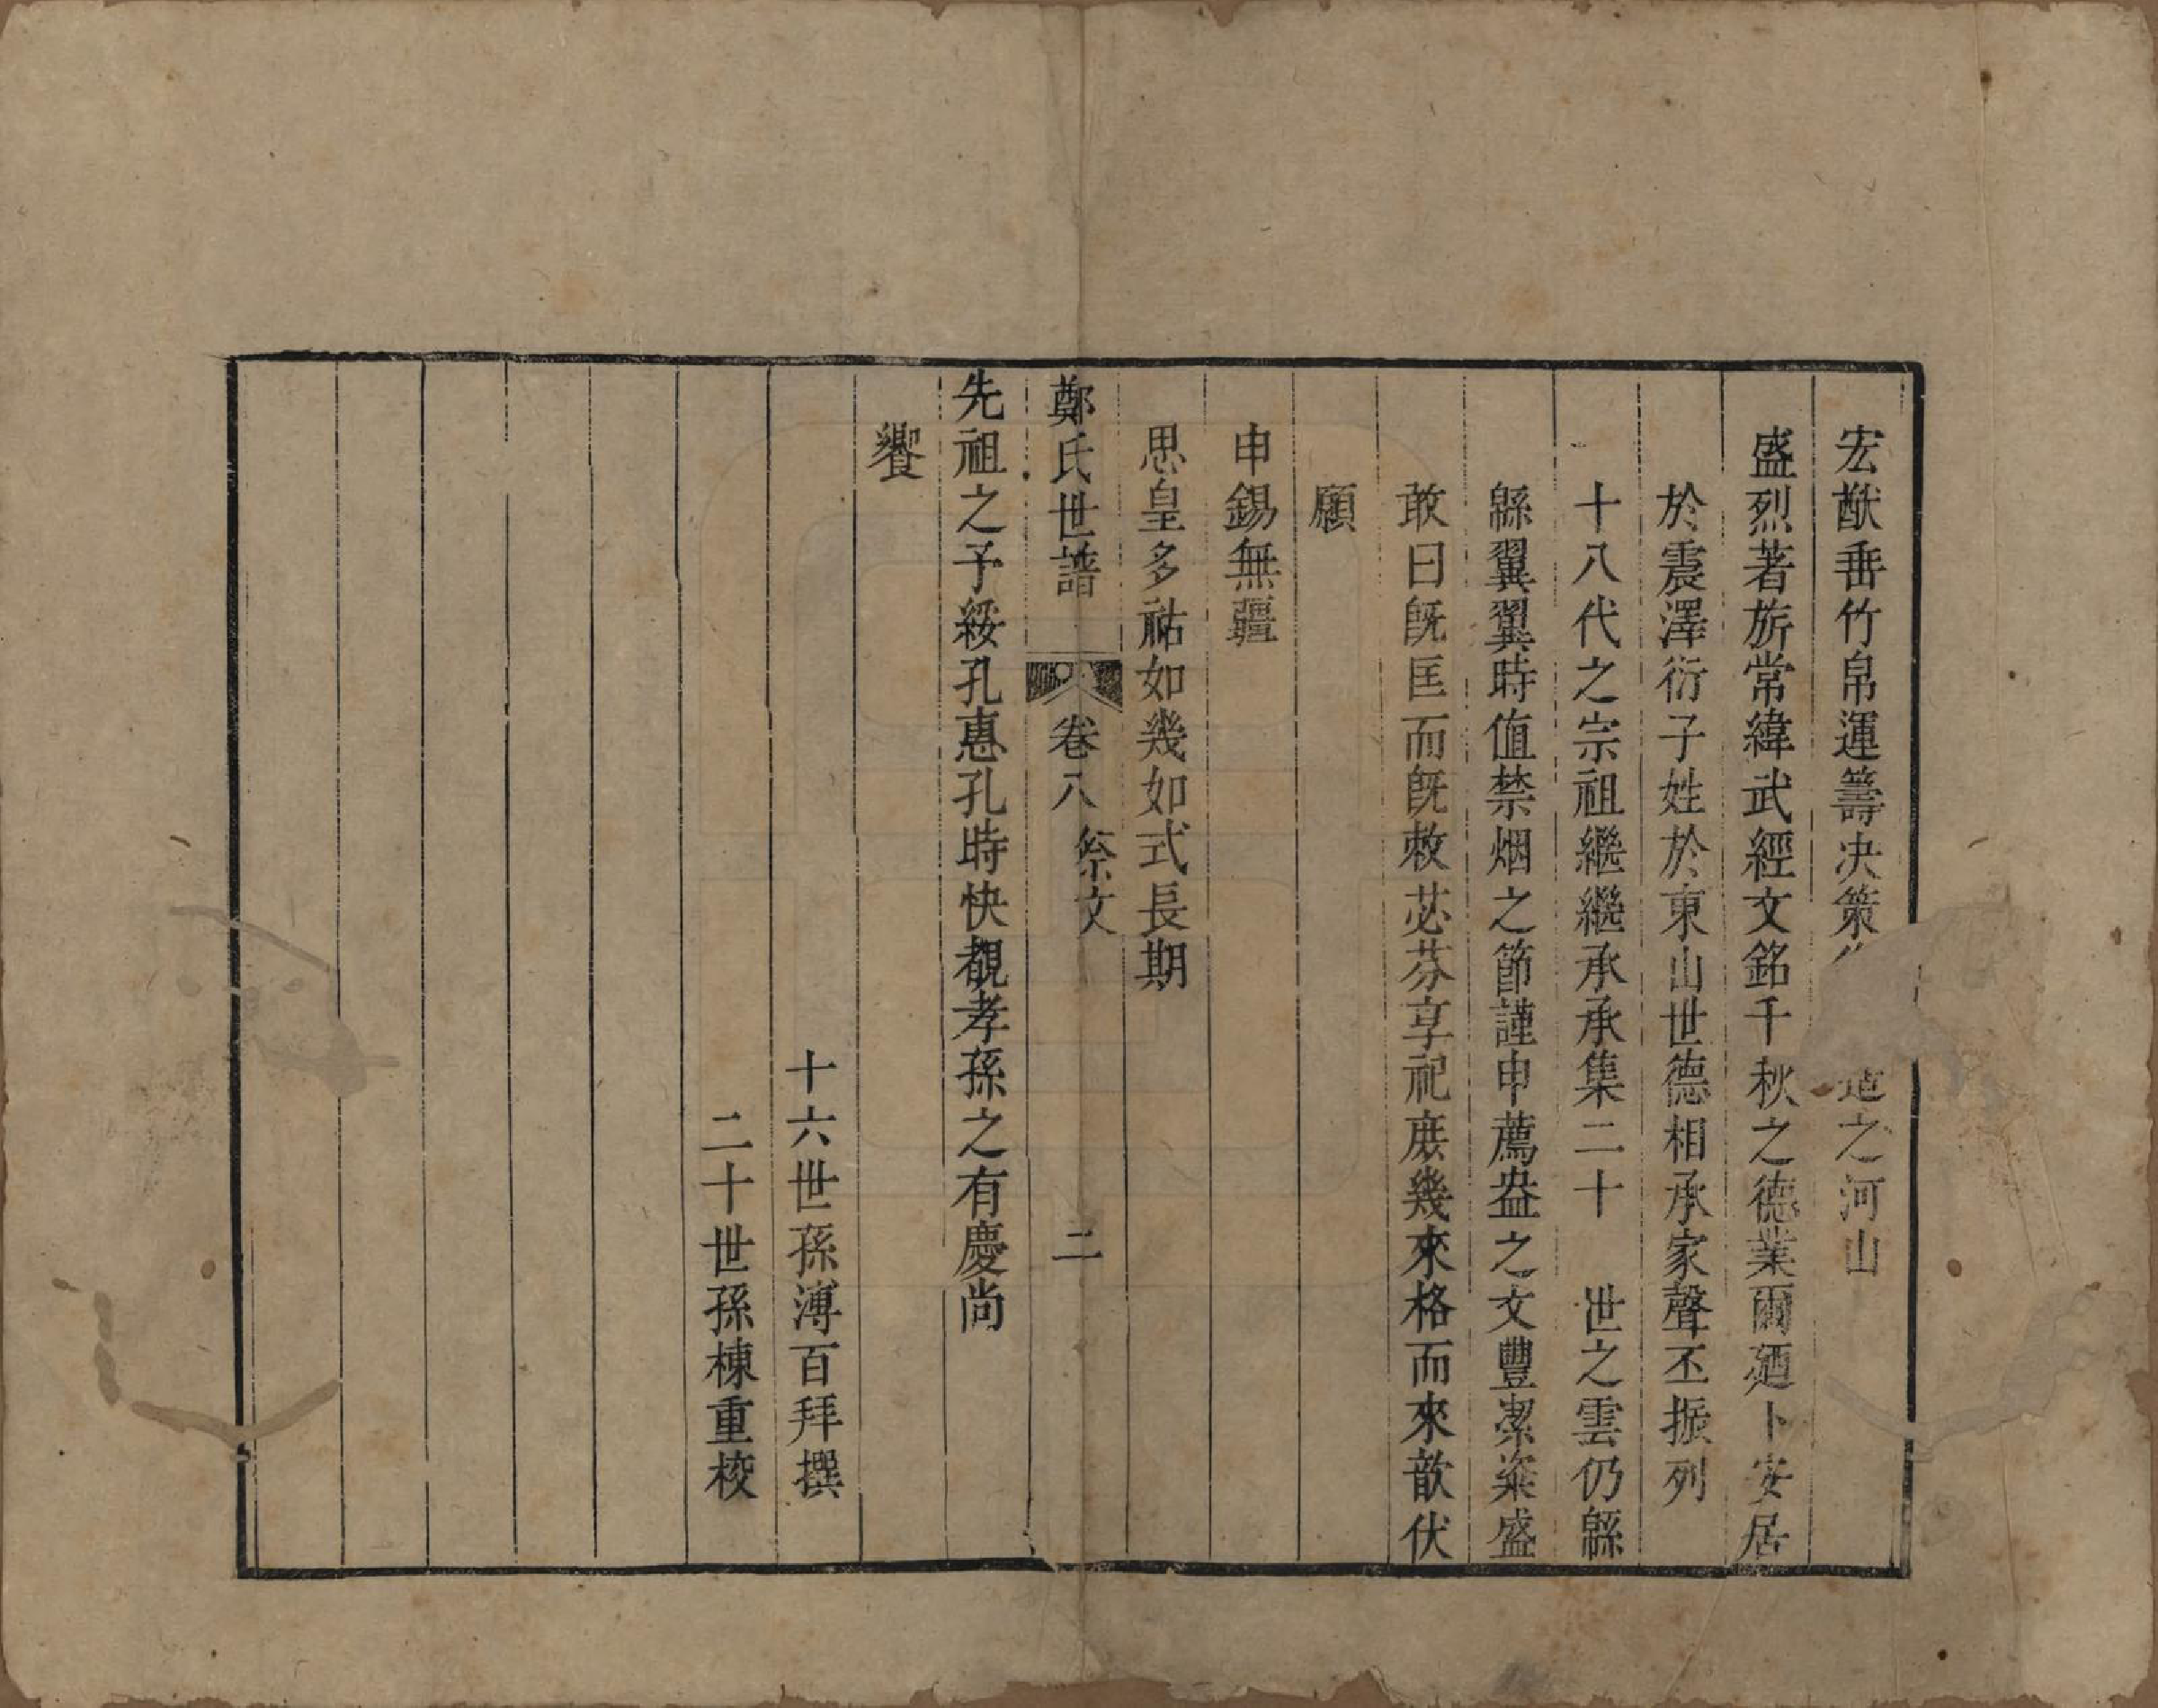 宏猷垂竹帛運籌决策之河山
盛烈著旂常緯武經文銘千秋之德業爾廼卜安居
於震澤衍子姓於東山世德相承家聲丕振列
十八代之宗祖繼繼承承集二十世之雲仍緜
緜翼翼時值禁烟之節謹申薦盎之文豐潔粢盛
敢曰旣匡而旣敕苾芬享祀庶幾來格而來歆伏
願
申錫無疆
思皇多祜如幾如式長期
鄭氏世譜 卷八 祭文 二
先祖之予綏孔惠孔時快覩孝孫之有慶尚
饗
十六世孫溥百拜撰
二十世孫棟重校